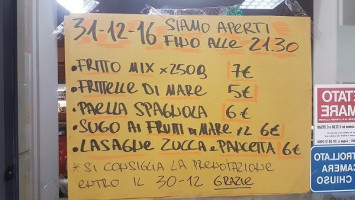 31-12-16 SIAMO APERTI
FINO ALLE 21.30
• FRITTO MIX x 250g 7€
• FRITTELLE DI MARE 5€
• PAELLA SPAGNOLA 6€
• SUGO AI FRUTTI DI MARE IL 6€
• LASAGNE ZUCCA e PANCETTA 6€
* SI CONSIGLIA LA PRENOTAZIONE
ENTRO IL 30-12 GRAZIE